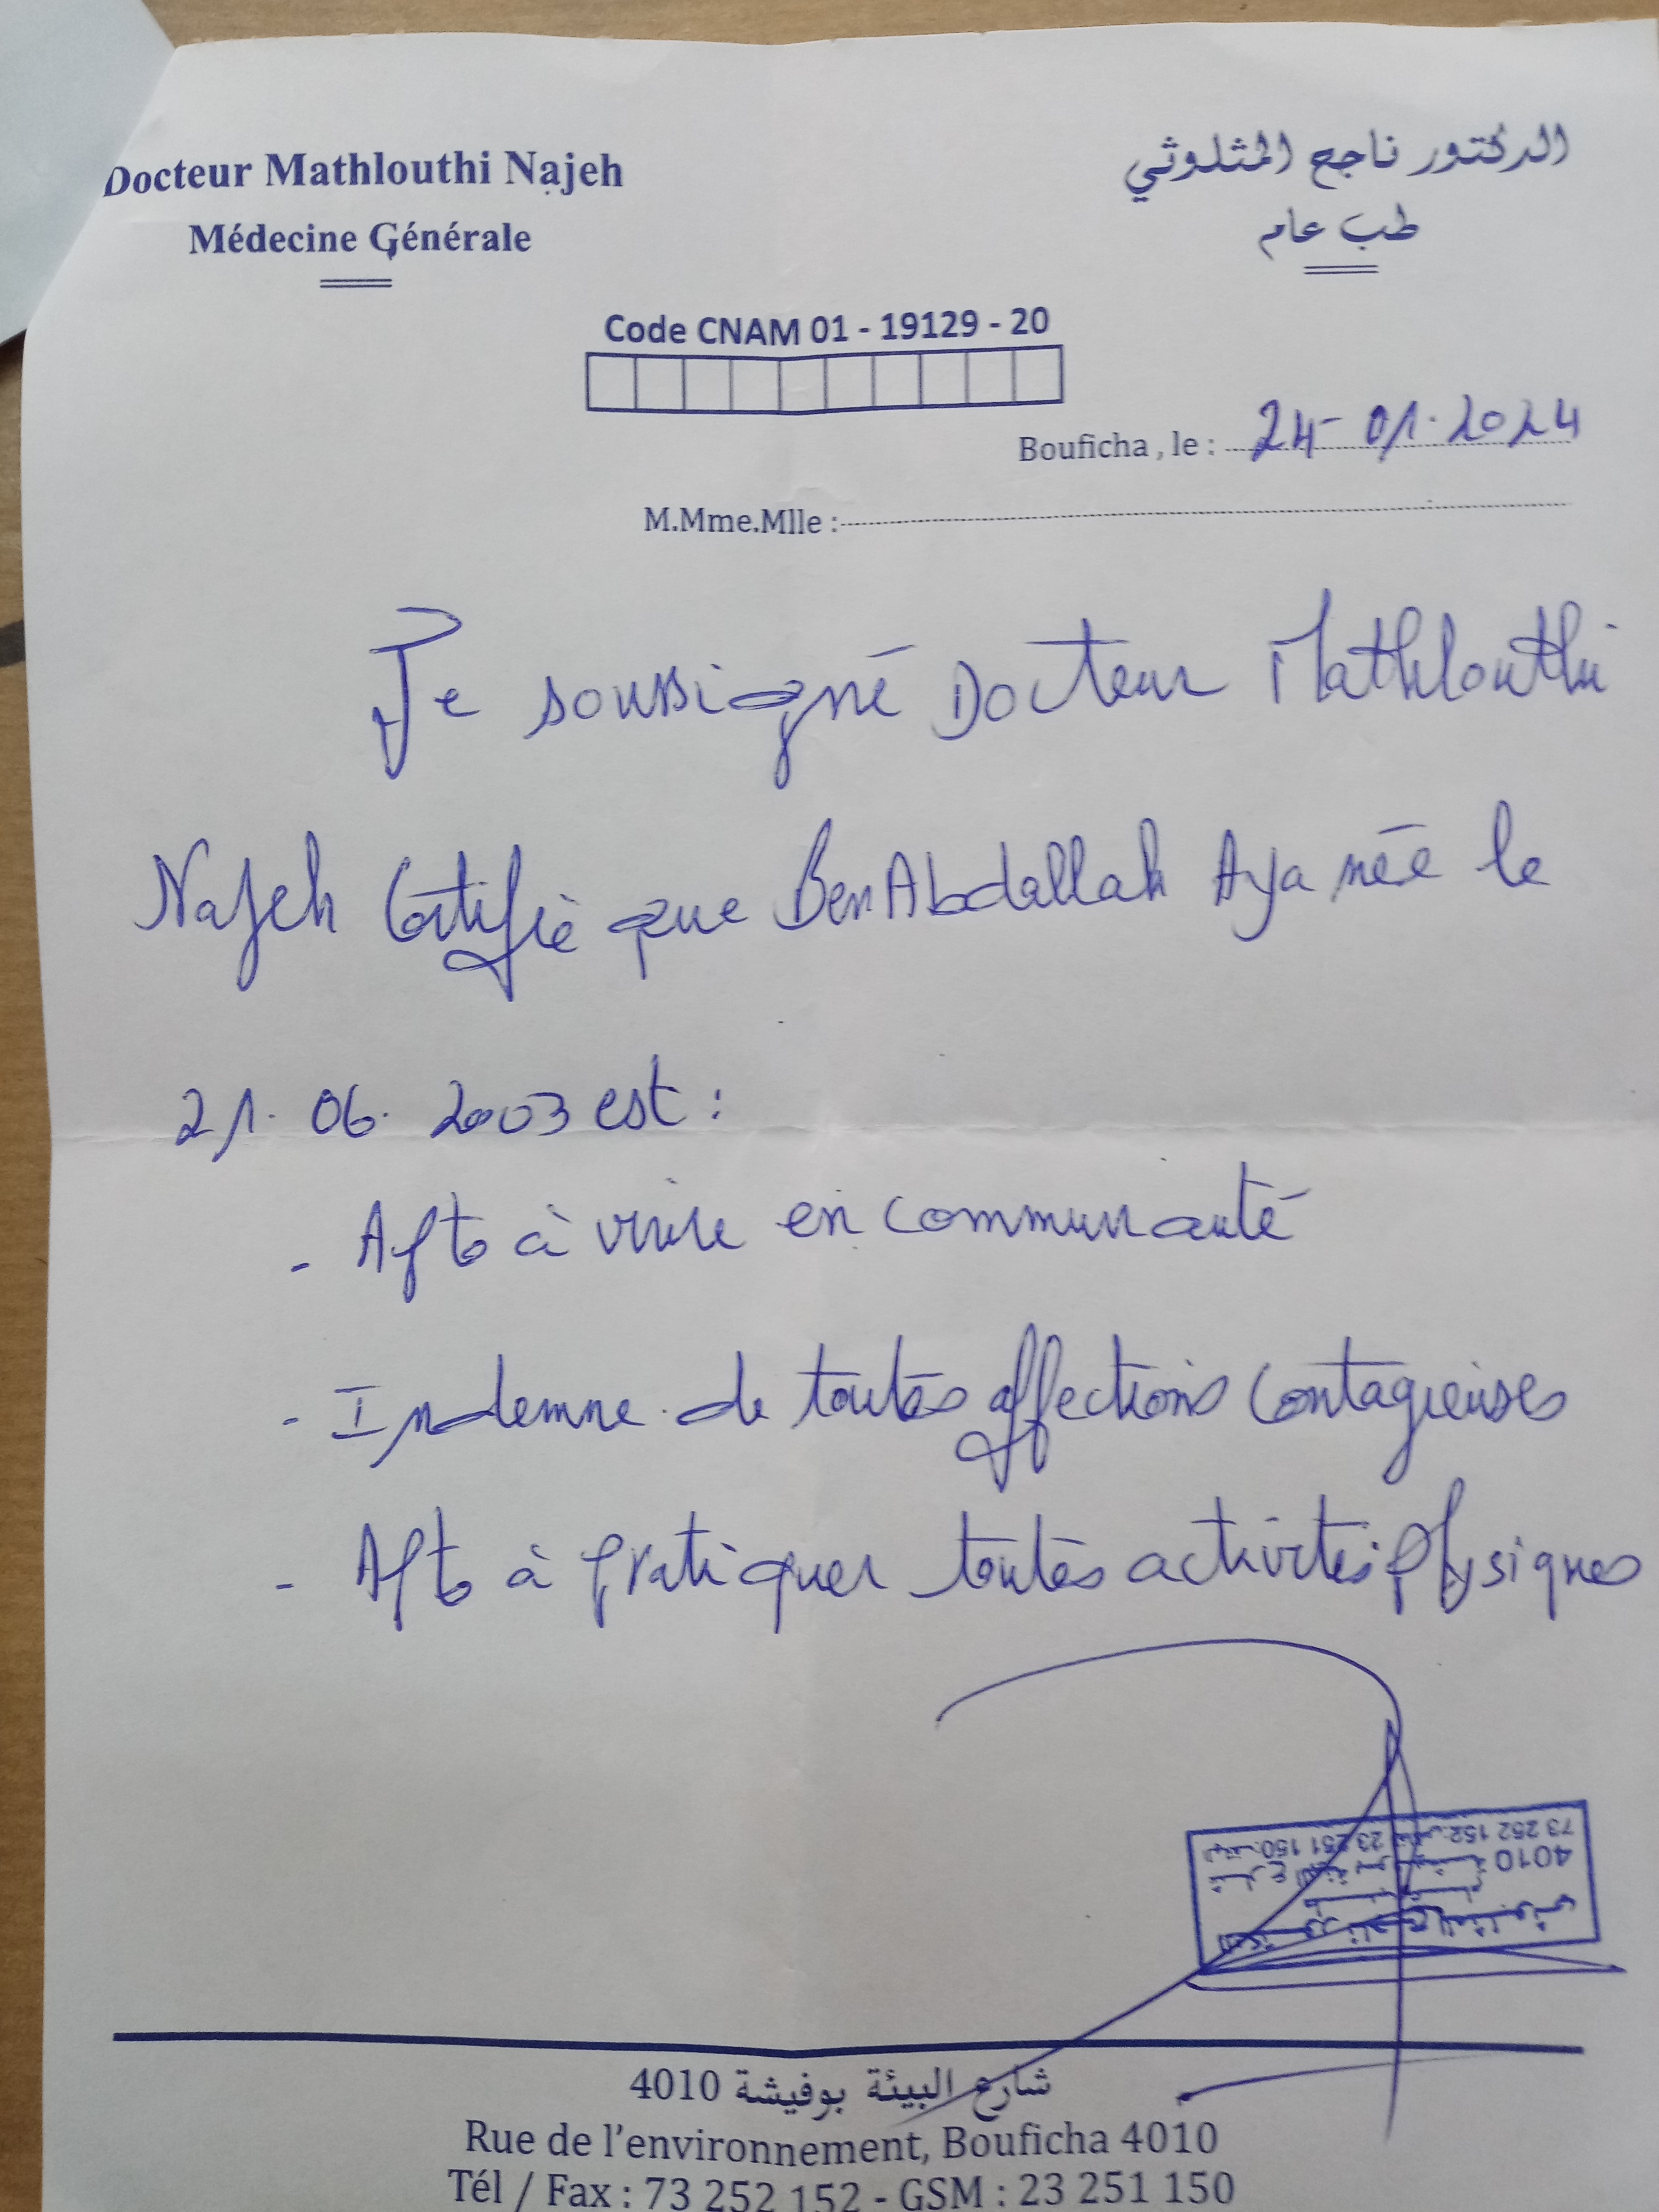 Docteur Mathlouthi Najeh
Médecine Générale
الدكتور ناجح المثلوثي
طب عام
Code CNAM 01 - 19129 - 20
Bouficha , le : 24-01-2024
M.Mme.Mlle :
Je soussigné Docteur Mathlouthi
Najeh Certifie que Ben Abdallah Aya née le
21. 06. 2003 est :
- Apte à vivre en communauté
- Indemne de toutes affections contagieuses
- Apte à pratiquer toutes activités physiques
الدكتور ناجح المثلوثي
طب عام
شارع البيئة بوفيشة 4010
الهاتف: 23 251 150 73 252 152
شارع البيئة بوفيشة 4010
Rue de l'environnement, Bouficha 4010
Tél / Fax : 73 252 152 - GSM : 23 251 150